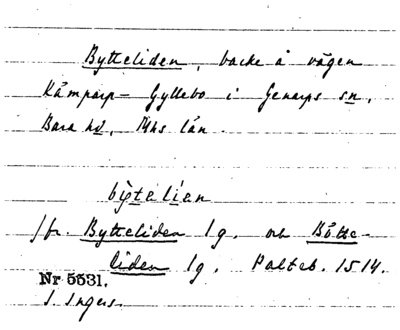 Bytteliden, backe å vägen
Kåmparp - Gyllebo i Genarps sn,
Bara hd, Mhs län.
bỳtelien
jfr. Bytteliden lg. och Bötte-
liden lg. Palteb. 1514.
Nr 5531.
I. Ingers.